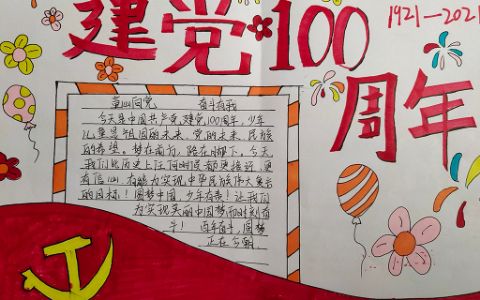 建党100
1921—2021
周年
童心向党 奋斗有我
今天是中国共产党建党100周年,少年
儿童是祖国的未来、党的未来、民族
的希望。梦在前方,路在脚下。今天,
我们比历史上任何时间都更接近,更
有信心、有能力实现中华民族伟大复兴
的目标!圆梦中国,少年有责!让我们
为实现美丽中国梦而时刻奋
斗! 百年奋斗,圆梦
正在今朝